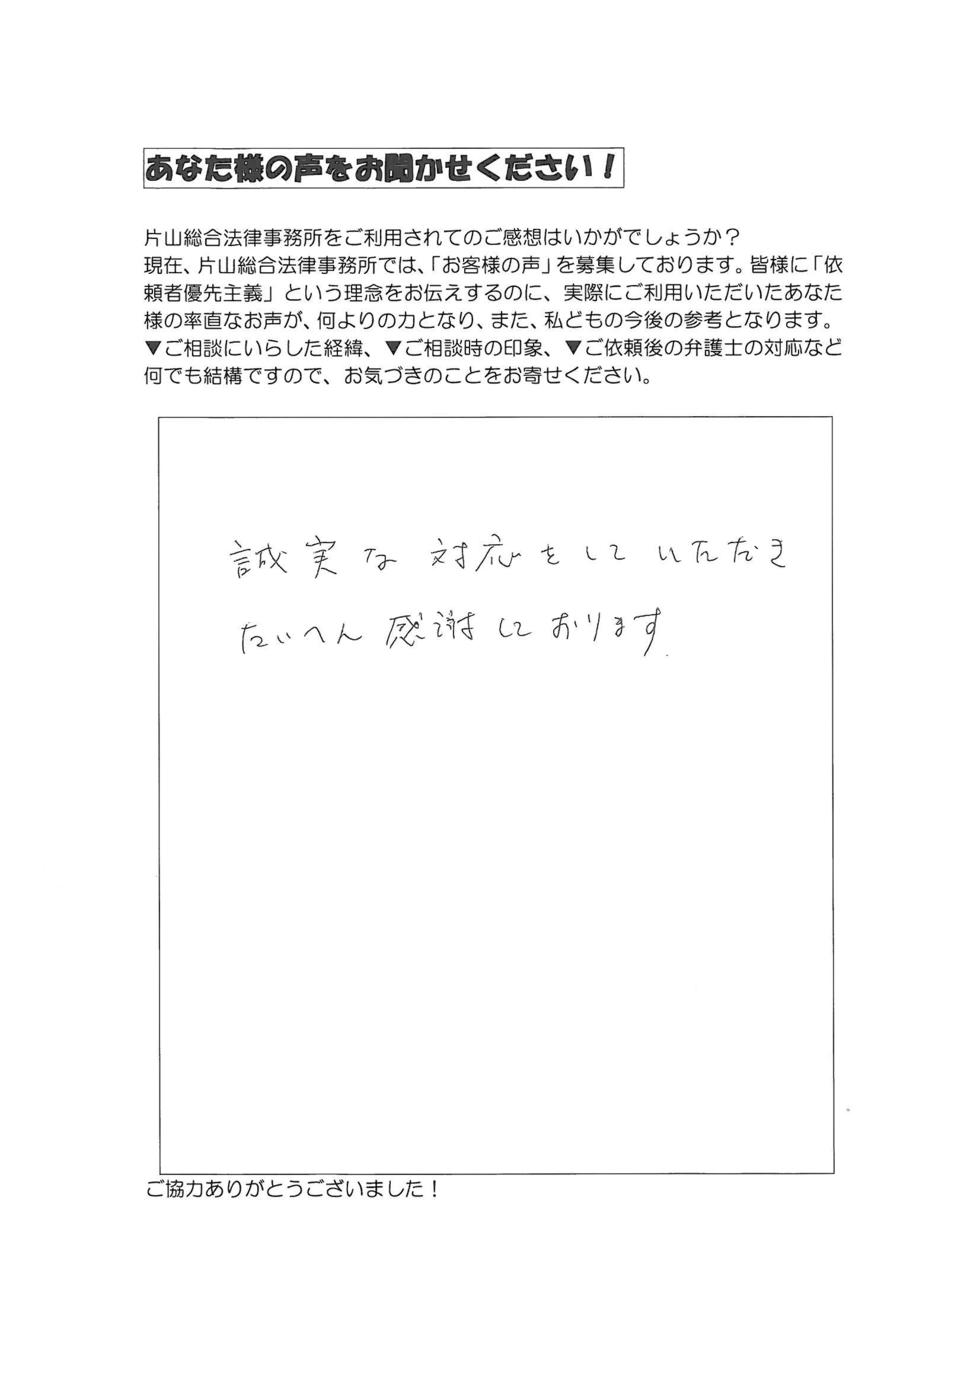 あなた様の声をお聞かせください！
片山総合法律事務所をご利用されてのご感想はいかがでしょうか？
現在、片山総合法律事務所では、「お客様の声」を募集しております。皆様に「依
頼者優先主義」という理念をお伝えするのに、実際にご利用いただいたあなた
様の率直なお声が、何よりの力となり、また、私どもの今後の参考となります。
▼ご相談にいらした経緯、▼ご相談時の印象、▼ご依頼後の弁護士の対応など
何でも結構ですので、お気づきのことをお寄せください。
誠実な対応をしていただき
たいへん感謝しております
ご協力ありがとうございました！